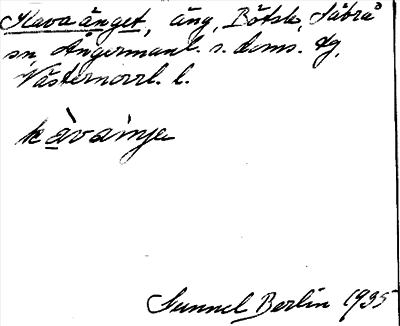 Kavaänget, äng, Bötsle, Säbrå
sn, Ångermanl. s. doms. dg,
Västernorrl. l.
kàvàinje
Gunnel Berlin 1935